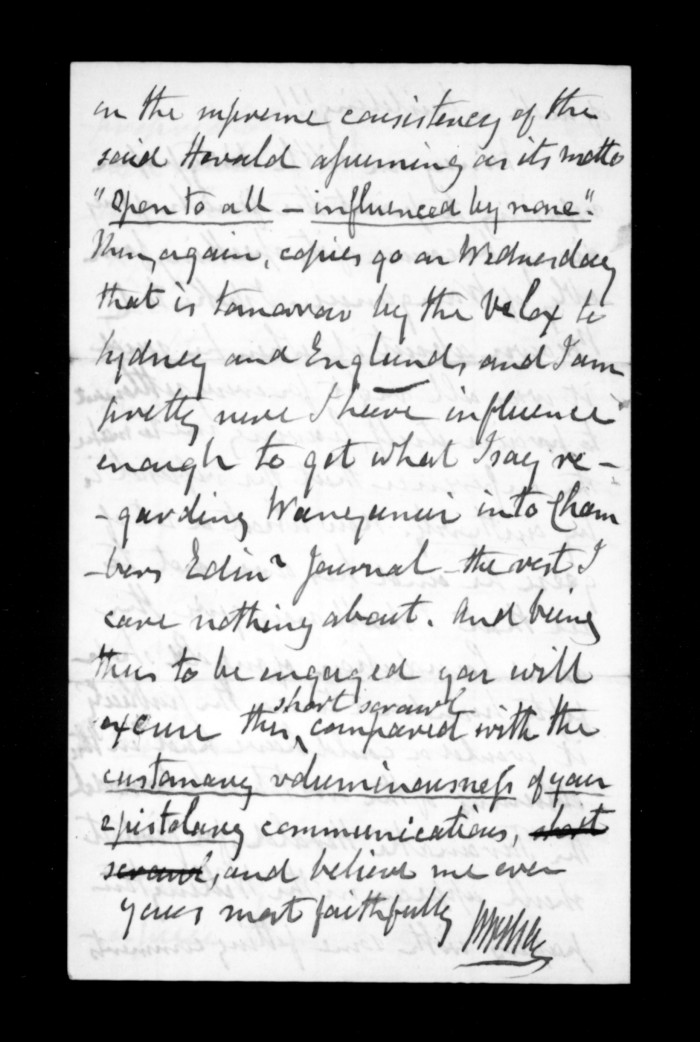 on the supreme consistency of the
said Herald assuming as its motto
"Open to all – influenced by none".
Then, again, copies go on Wednesday
that is tomorrow by the Velox to
Sydney and England, and I am
pretty sure I have influence
enough to get what I say re-
-garding Wanganui into Cham
-bers Edinr Journal – the rest I
care nothing about. And being
thus to be engaged you will
excuse this short scrawl, compared with the
customary voluminousness of your
epistolary communications, short
scrawl, and believe me ever
yours most faithfully